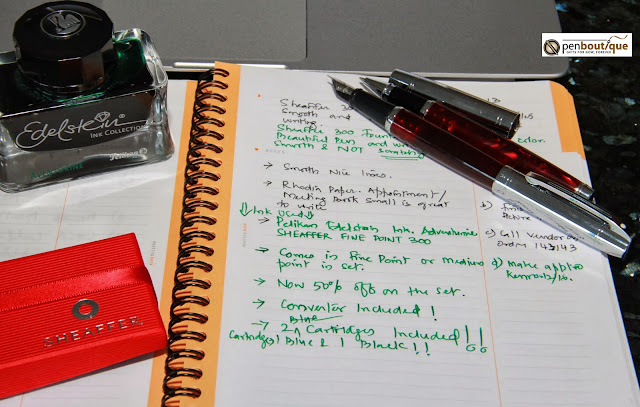 penboutique
GIFTS FOR NOW, FOREVER
Edelstein
INK COLLECTION
Pelikan
SHEAFFER
Sheaffer
Smooth and
writing.
Sheaffer 300
Beautiful Pen and
Smooth & NOT scratchy
→ Smooth Nice lines.
→ Rhodia Paper. Appointment/
Meeting book small is great
to write
↓Ink Used↓
→ Pelikan Edelstein Ink. Adventurine
SHEAFFER FINE POINT 300
→ Comes in Fine Point or medium
point in set.
→ Now 50% off on the set.
→ Converter Included!
Blue
→ 2 Cartridges Included!!!
Cartridges 1 Blue & 1 Black!!
c) Call Vendor
order 143/143
d) Make appt